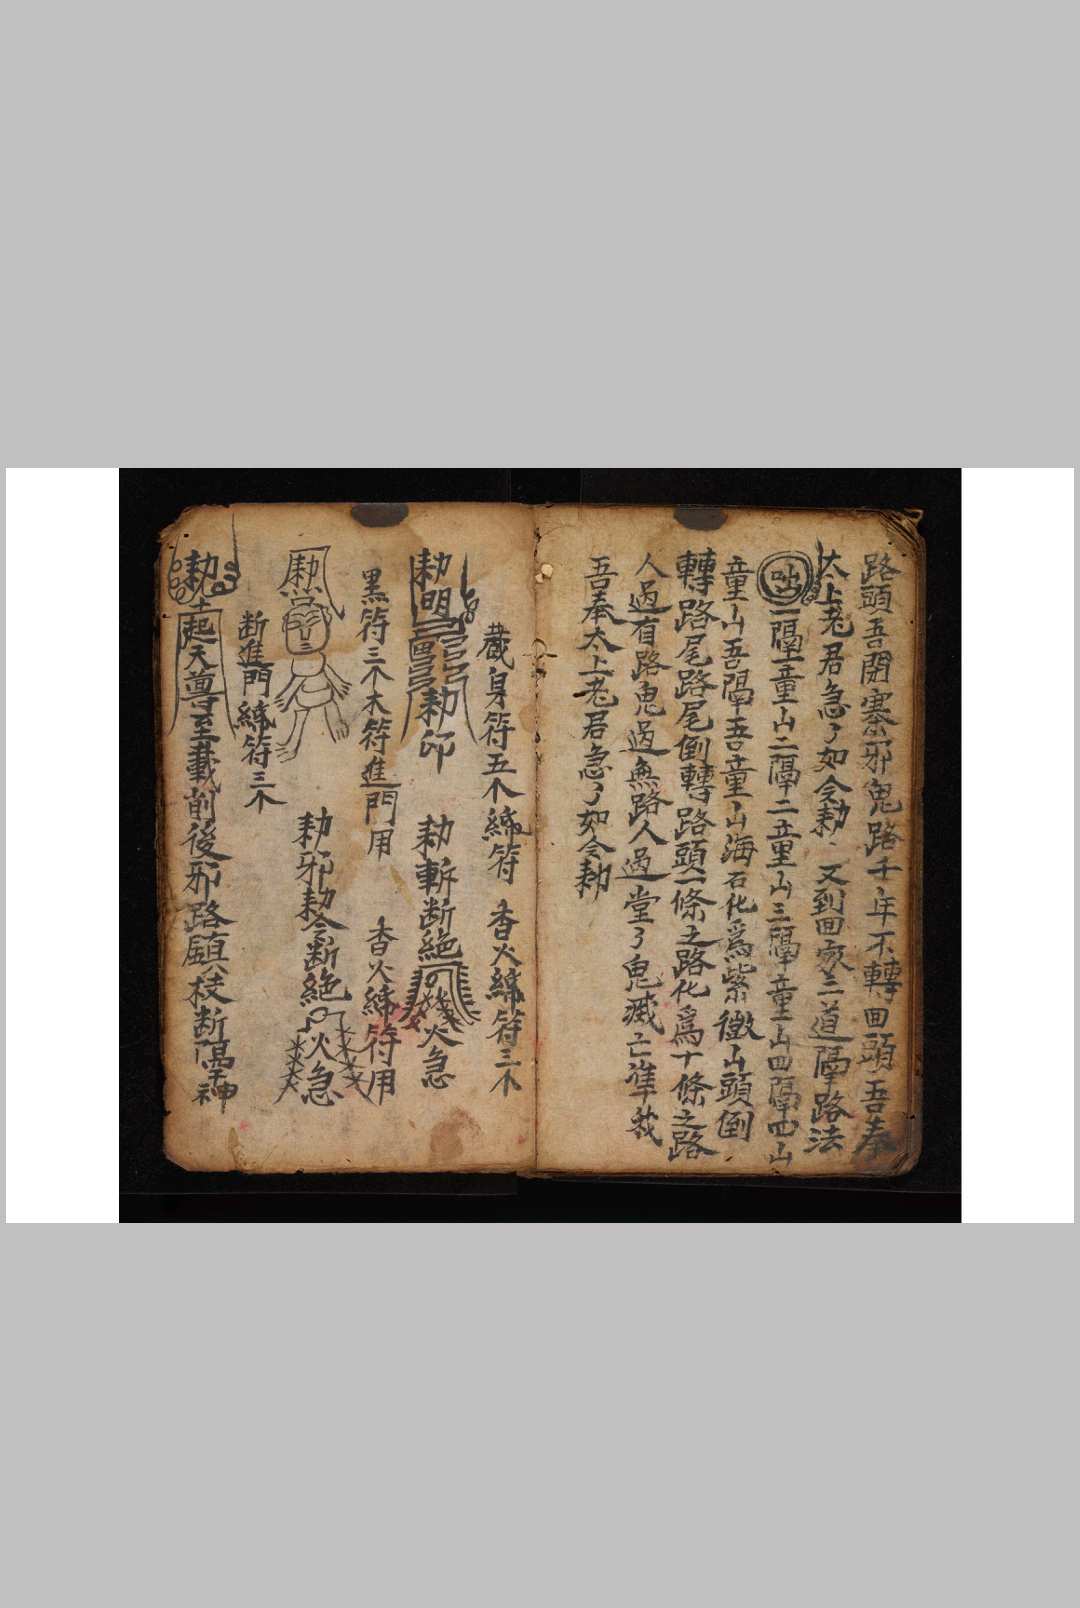 路頭吾閉塞邪鬼路千年不轉回頭吾奉
太上老君急〻如令勅 又到回家三道隔路法
一隔一重山二隔二重山三隔重山四隔四山
重山吾隔吾重山海石化爲紫微山頭倒
轉路尾路尾倒轉路頭一條之路化爲十條之路
人過有路鬼過無路人過堂〻鬼滅亡準我
吾奉太上老君急〻如令勅
藏身符五个 符 香火 符三个
勅明 勅印 勅斬断絶 火急
黑符三个木符進門用 香火 符用
勅 勅邪勅令断絶 火急
断進門 符三个
勅 起天尊至 前後邪路 枝断隔神